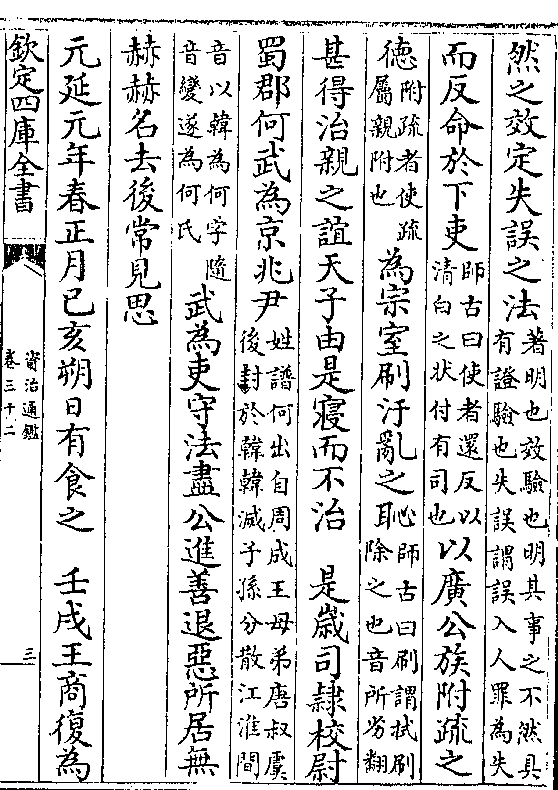 然之效定失誤之法著明也效驗也明其事之不然具有證驗也失誤謂誤入人罪為失
而反命於下吏師古曰使者還反以清白之狀付有司也以廣公族附疏之
德附疏者使疏屬親附也為宗室刷汙亂之恥師古曰刷謂拭刷除之也音所劣翻
甚得治親之誼天子由是寢而不治 是歲司隸校尉
蜀郡何武為京兆尹姓譜何出自周成王母弟唐叔虞後封於韓韓滅子孫分散江淮間
音以韓為何字隨音變遂為何氏武為吏守法盡公進善退惡所居無
赫赫名去後常見思
元延元年春正月已亥朔日有食之 壬戌王商復為
欽定四庫全書
資治通鑑
卷三十二
三